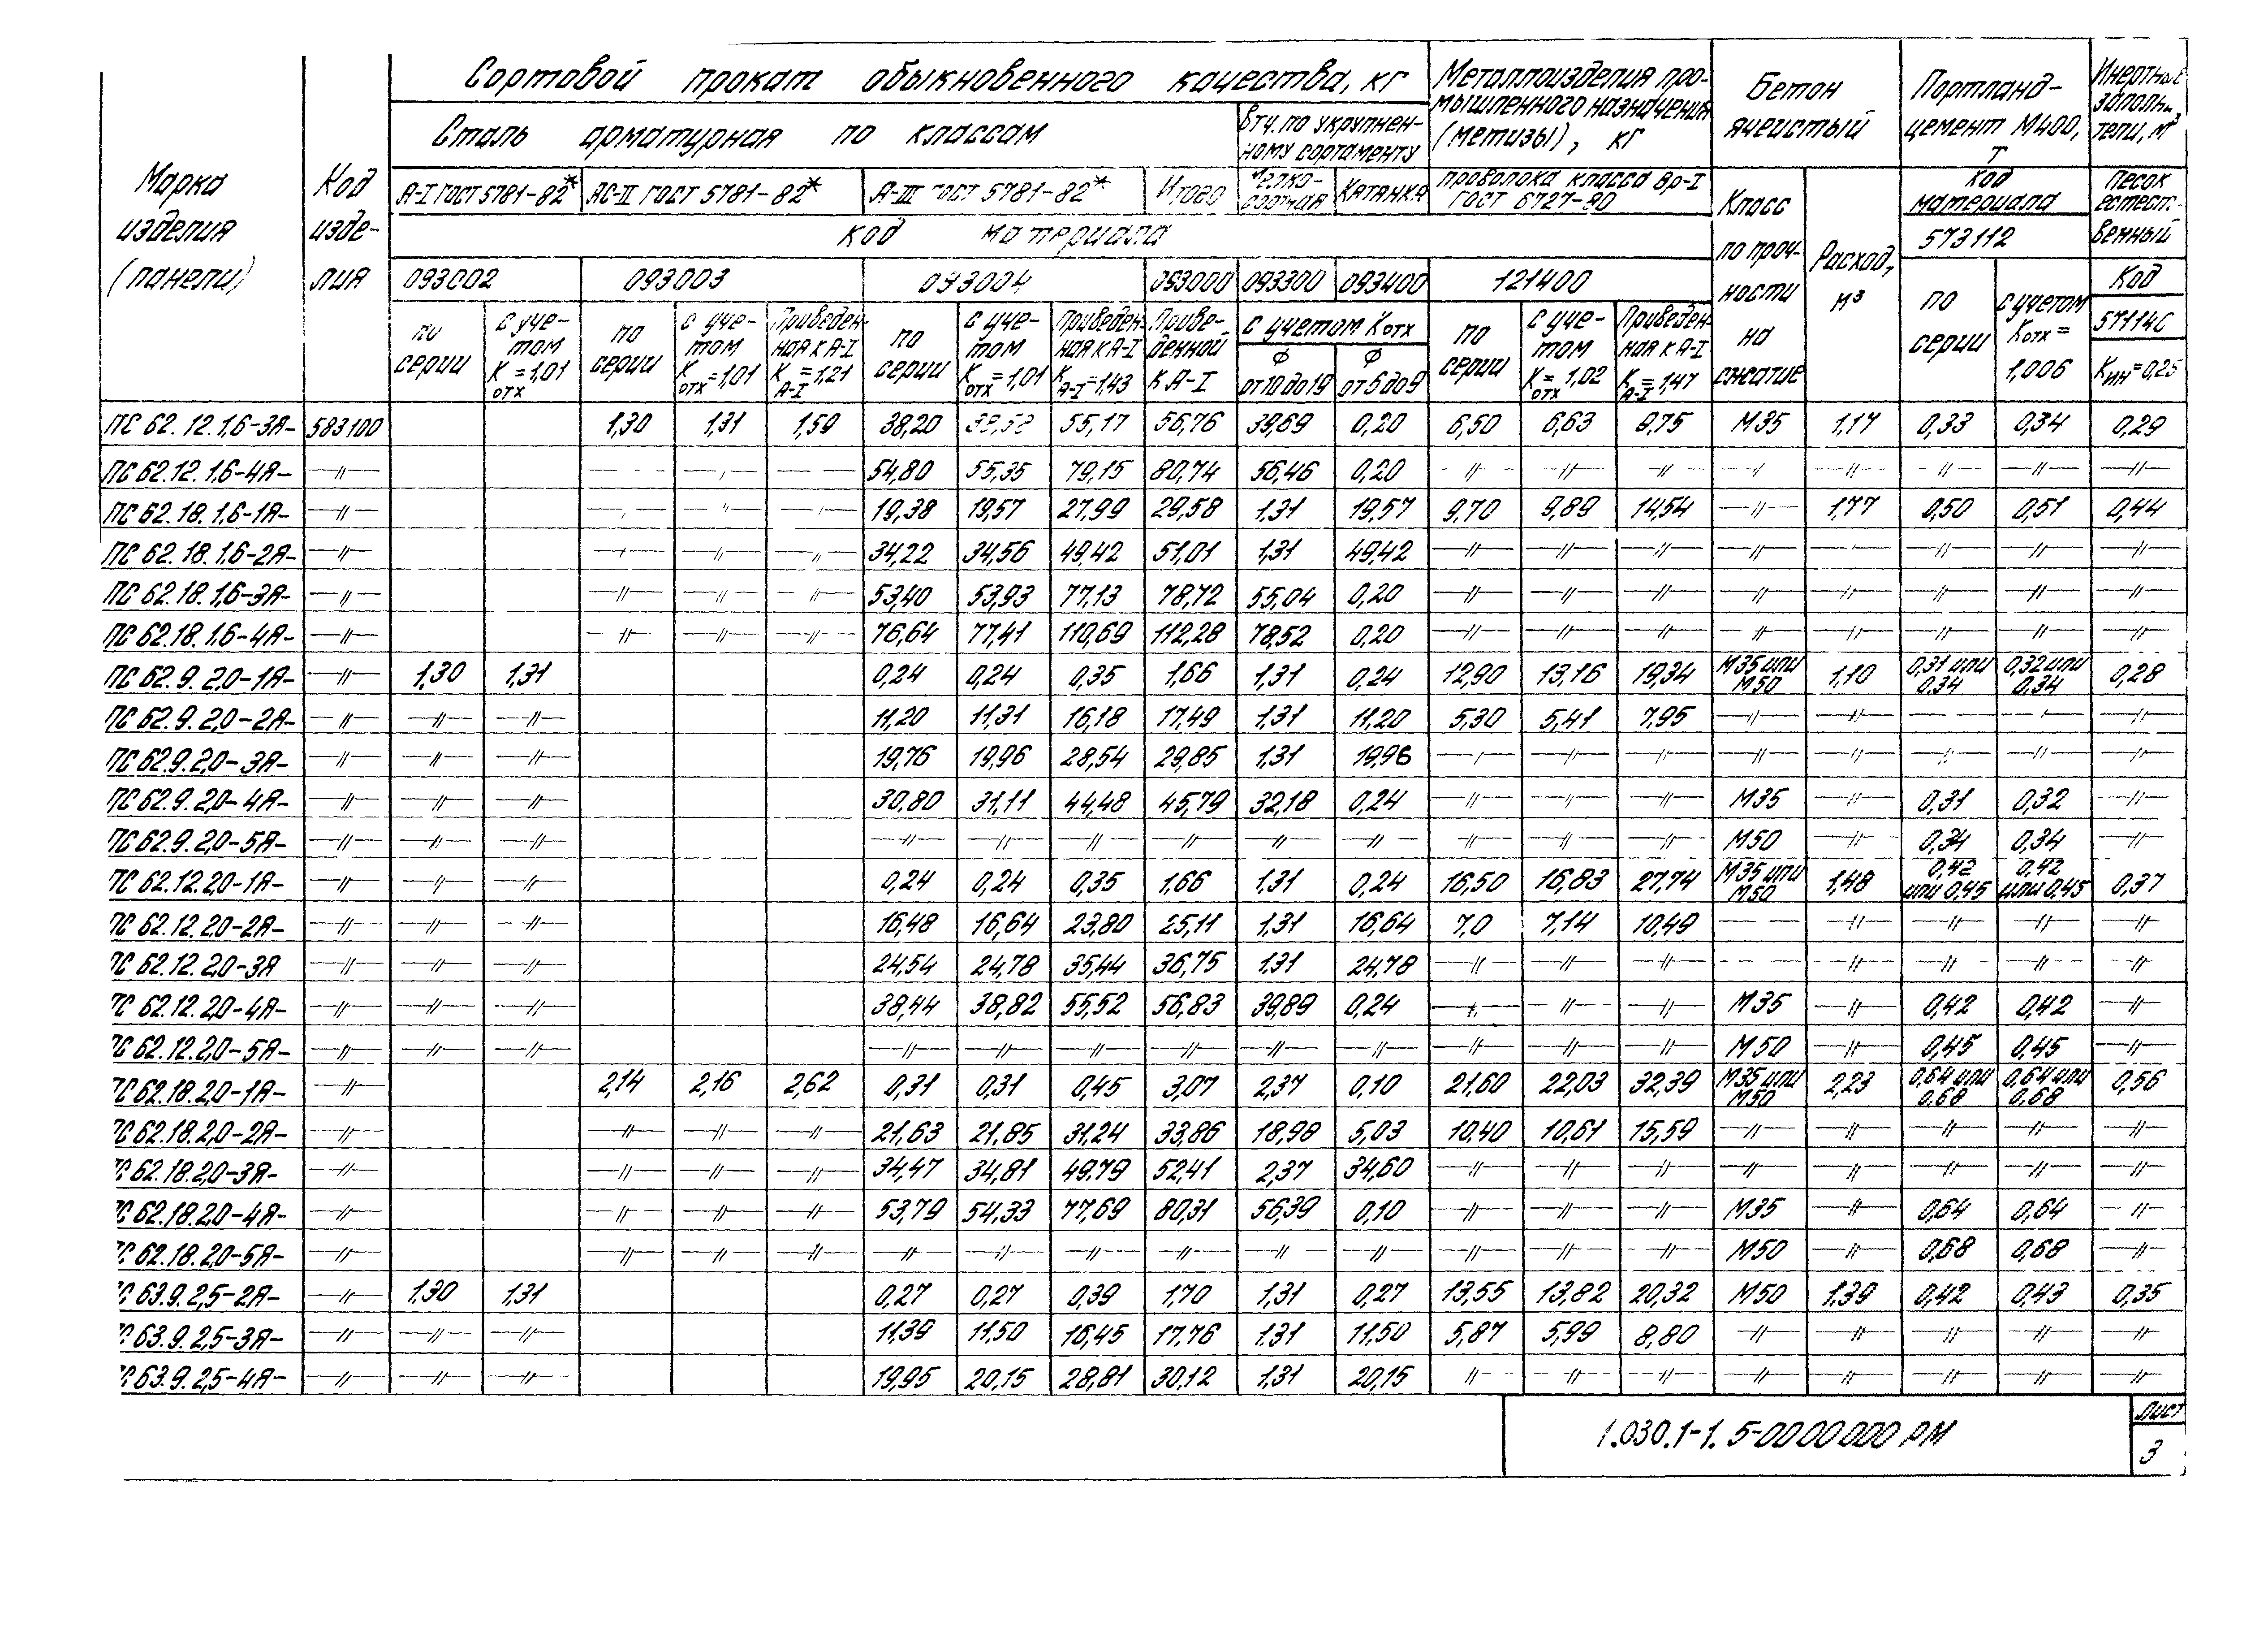 Сортовой прокат обыкновенного качества, кг
Металлоизделия про-
мышленного назначения
(метизы), кг
Бетон
ячеистый
Портланд-
цемент М400,
т
Инертные
заполни
тели, м³
Марка
изделия
(панели)
Код
изде-
лия
Сталь арматурная по классам
Вт.ч. по укрупнен-
ному сортаменту
А-I ГОСТ 5781-82* АС-II ГОСТ 5781-82* А-III ГОСТ 5781-82* Итого Мелко-
сортная Катанка
проволока класса Вр-I
ГОСТ 6727-80
Класс
по проч-
ности
на
сжатие
Расход,
м³
код
материала
573112
песок
естест-
венный
Код материала
093002 093003 093004 093000 093300 093400 121400
Код
57114С
Кин=0,25
по
серии
с уче-
том
К =1,01
отх
по
серии
с уче-
том
К =1,01
отх
Приведен-
ная к А-I
К =1,21
А-I
по
серии
с уче-
том
К =1,01
отх
Приведен-
ная к А-I
К =1,43
А-I
Приве-
денной
к А-I
с учетом Котх
ф
от 10 до 19
ф
от 6 до 9
по
серии
с уче-
том
К = 1,02
отх
Приведен-
ная к А-I
К =1,47
А-I
по
серии
с учетом
Котх =
1,006
ПС 62.12.1,6-3Я- 583100 1,30 1,31 1,59 38,20 55,17 56,76 39,69 0,20 6,50 6,63 9,75 М35 1,17 0,33 0,34 0,29
ПС 62.12.1,6-4Я- —//— 54,80 55,35 79,15 80,74 56,46 0,20 —//— —//— —//— —//— —//— —//— —//— —//—
ПС 62.18.1,6-1Я- —//— 19,38 19,57 27,99 29,58 1,31 19,57 9,70 9,89 14,54 —//— 1,77 0,50 0,51 0,44
ПС 62.18.1,6-2Я- —//— —//— —//— —//— 34,22 34,56 49,42 51,01 1,31 49,42 —//— —//— —//— —//— —//— —//— —//— —//—
ПС 62.18.1,6-3Я- —//— —//— —//— —//— 53,40 53,93 77,13 78,72 55,04 0,20 —//— —//— —//— —//— —//— —//— —//— —//—
ПС 62.18.1,6-4Я- —//— —//— —//— —//— 76,64 77,41 110,69 112,28 78,52 0,20 —//— —//— —//— —//— —//— —//— —//— —//—
ПС 62.9.2,0-1Я- —//— 1,30 1,31 0,24 0,24 0,35 1,66 1,31 0,24 12,90 13,16 19,34 М35 или М50 1,10 0,31 или 0,34 0,32 или 0,34 0,28
ПС 62.9.2,0-2Я- —//— —//— —//— 11,20 11,31 16,18 17,49 1,31 11,20 5,30 5,41 7,95 —//— —//— —//— —//— —//—
ПС 62.9.2,0-3Я- —//— —//— —//— 19,76 19,96 28,54 29,85 1,31 19,96 —//— —//— —//— —//— —//— —//— —//— —//—
ПС 62.9.2,0-4Я- —//— —//— —//— 30,80 31,11 44,48 45,79 32,18 0,24 —//— —//— —//— М35 —//— 0,31 0,32 —//—
ПС 62.9.2,0-5Я- —//— —//— —//— —//— —//— —//— —//— —//— —//— —//— —//— —//— М50 —//— 0,34 0,34 —//—
ПС 62.12.2,0-1Я- —//— —//— —//— 0,24 0,24 0,35 1,66 1,31 0,24 16,50 16,83 27,74 М35 или М50 1,48 0,42 или 0,45 0,42 или 0,45 0,37
ПС 62.12.2,0-2Я- —//— —//— —//— 16,48 16,64 23,80 25,11 1,31 16,64 7,0 7,14 10,49 —//— —//— —//— —//— —//—
ПС 62.12.2,0-3Я —//— —//— —//— 24,54 24,78 35,44 36,75 1,31 24,78 —//— —//— —//— —//— —//— —//— —//— —//—
ПС 62.12.2,0-4Я- —//— —//— —//— 38,44 38,82 55,52 56,83 39,89 0,24 —//— —//— —//— М35 —//— 0,42 0,42 —//—
ПС 62.12.2,0-5Я- —//— —//— —//— —//— —//— —//— —//— —//— —//— —//— —//— —//— М50 —//— 0,45 0,45 —//—
ПС 62.18.2,0-1Я- —//— 2,14 2,16 2,62 0,31 0,31 0,45 3,07 2,37 0,10 21,60 22,03 32,39 М35 или М50 2,23 0,64 или 0,68 0,64 или 0,68 0,56
ПС 62.18.2,0-2Я- —//— —//— —//— —//— 21,63 21,85 31,24 33,86 18,98 5,03 10,40 10,61 15,59 —//— —//— —//— —//— —//—
ПС 62.18.2,0-3Я- —//— —//— —//— —//— 34,47 34,81 49,79 52,41 2,37 34,60 —//— —//— —//— —//— —//— —//— —//— —//—
ПС 62.18.2,0-4Я- —//— —//— —//— —//— 53,79 54,33 77,69 80,31 56,39 0,10 —//— —//— —//— М35 —//— 0,64 0,64 —//—
ПС 62.18.2,0-5Я- —//— —//— —//— —//— —//— —//— —//— —//— —//— —//— —//— —//— —//— М50 —//— 0,68 0,68 —//—
С 63.9.2,5-2Я- —//— 1,30 1,31 0,27 0,27 0,39 1,70 1,31 0,27 13,55 13,82 20,32 М50 1,39 0,42 0,43 0,35
С 63.9.2,5-3Я- —//— —//— —//— 11,39 11,50 16,45 17,76 1,31 11,50 5,87 5,99 8,80 —//— —//— —//— —//— —//—
С 63.9.2,5-4Я- —//— —//— —//— 19,95 20,15 28,81 30,12 1,31 20,15 —//— —//— —//— —//— —//— —//— —//— —//—
1.030.1-1. 5-0000000 РМ
Лист
3